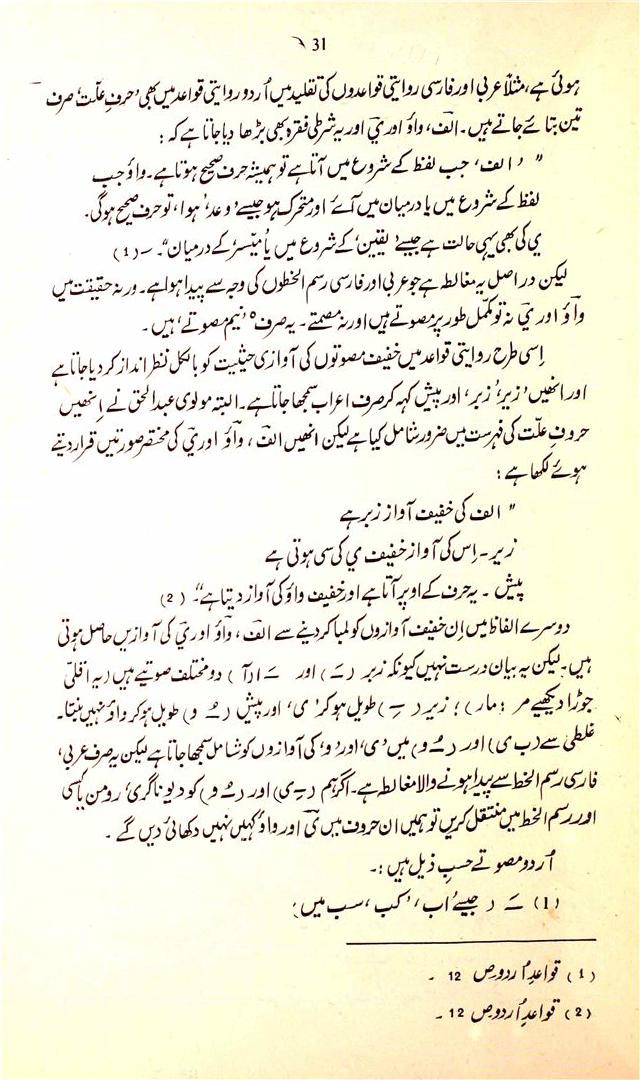 31
ہوئی ہے، مثلاً عربی اور فارسی روایتی قواعدوں کی تقلید میں اُردو روایتی قواعد میں بھی 'حرفِ علّت' صرف
تین بتائے جاتے ہیں۔ الف، واؤ اور ی اور یہ شرطی فقرہ بھی بڑھا دیا جاتا ہے کہ:
" 'الف' جب لفظ کے شروع میں آتا ہے تو ہمیشہ حرف صحیح ہوتا ہے۔ واؤ جب
لفظ کے شروع میں یا درمیان میں آئے اور متحرک ہو جیسے 'وعدہ' ہوا، تو حرف صحیح ہوگی۔
ی کی بھی یہی حالت ہے جیسے 'یقین' کے شروع میں یا 'میسّر' کے درمیان"۔ (1)
لیکن دراصل یہ مغالطہ ہے جو عربی اور فارسی رسم الخطوں کی وجہ سے پیدا ہوا ہے۔ ورنہ حقیقت میں
واؤ اور ی نہ تو مکمل طور پر مصوتے ہیں اور نہ مصمتے۔ یہ صرف 'نیم مصوتے' ہیں۔
اِسی طرح روایتی قواعد میں خفیف مصوتوں کی آوازی حیثیت کو بالکل نظر انداز کر دیا جاتا ہے
اور انھیں 'زیر'، 'زبر' اور پیش کہہ کر صرف اعراب سمجھا جاتا ہے۔ البتہ مولوی عبدالحق نے اِنھیں
حروفِ علّت کی فہرست میں ضرور شامل کیا ہے لیکن انھیں الف، واؤ اور ی کی مختصر صورتیں قرار دیتے
ہوئے لکھا ہے:
" الف کی خفیف آواز زبر ہے
زیر۔ اِس کی آواز خفیف ی کی سی ہوتی ہے
پیش۔ یہ حرف کے اوپر آتا ہے اور خفیف واؤ کی آواز دیتا ہے"۔ (2)
دوسرے الفاظ میں اِن خفیف آوازوں کو لمبا کر دینے سے الف، واؤ اور ی کی آوازیں حاصل ہوتی
ہیں۔ لیکن یہ بیان درست نہیں کیونکہ زبر ( ـَ ) اور ( آ ) دو مختلف صوتیے ہیں (یہ اقلّی
جوڑا دیکھیے مر : مار) ؛ زیر ( ـِ ) طویل ہو کر 'ی' اور پیش ( ـُ و) طویل ہو کر واؤ نہیں بنتا۔
غلطی سے (ـِ ی) اور (ـُ و) میں 'ی' اور 'و' کی آوازوں کو شامل سمجھا جاتا ہے لیکن یہ صرف عربی،
فارسی رسم الخط سے پیدا ہونے والا مغالطہ ہے۔ اگر ہم (ـِ ی) اور (ـُ و) کو دیوناگری، رومن یا کسی
اور رسم الخط میں منتقل کریں تو ہمیں ان حروف میں ی اور واؤ کہیں نہیں دکھائی دیں گے۔
اُردو مصوتے حسبِ ذیل ہیں :۔
(1) ـَ ( جیسے 'اب'، 'کب'، 'سب' میں)
(1) قواعدِ اُردو ص 12 ۔
(2) قواعدِ اُردو ص 12 ۔